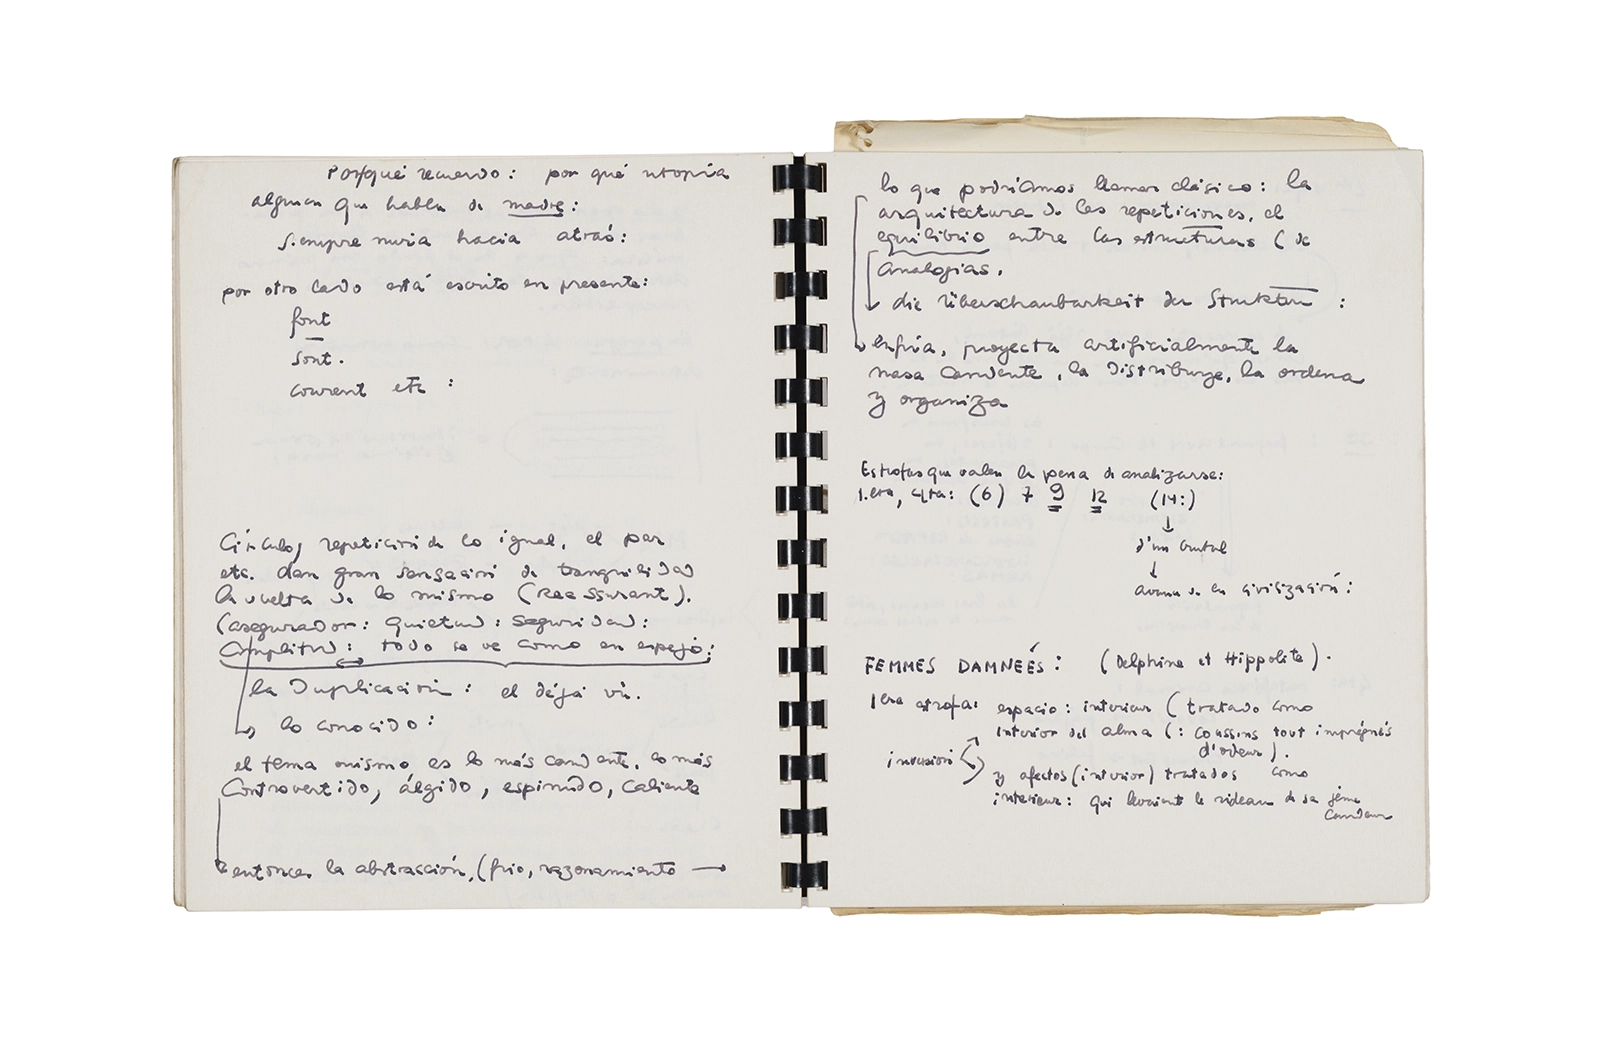 Porqué recuerdo: por qué utopía
alguien que habla de madre:
siempre mira hacia atrás:
por otro lado está escrito en presente:
font
sont.
courent etc :
Círculo, repetición de lo igual, el par
etc. dan gran sensación de tranquilidad
la vuelta de lo mismo (Reassurant).
(asegurador: quietud: seguridad:
Amplitud: todo se ve como en espejo:
la Duplicación: el déjà vu.
lo conocido:
el tema mismo es lo más candente, lo más
controvertido, álgido, espinudo, caliente
entonces la abstracción, (frio, razonamiento →
lo que podríamos llamar clásico: la
arquitectura de las repeticiones, el
equilibrio entre las estructuras (de
analogías.
die Überschaubarkeit der Strukturen :
enfría, proyecta artificialmente la
masa candente, la distribuye, la ordena
y organiza
Estrofas que valen la pena de analizarse:
1.era, 4ta: (6) 7 9 12 (14:)
↓
d'un brutal
↓
avance de la civilización:
FEMMES DAMNEÉS: (Delphine et Hippolite).
1era estrofa: espacio: interieur (tratado como
interior del alma (: coussins tout imprégnés
d'odeur).
invasión
y afectos (interior) tratados como
interieur: qui levaient le rideau de sa jeune
candeur